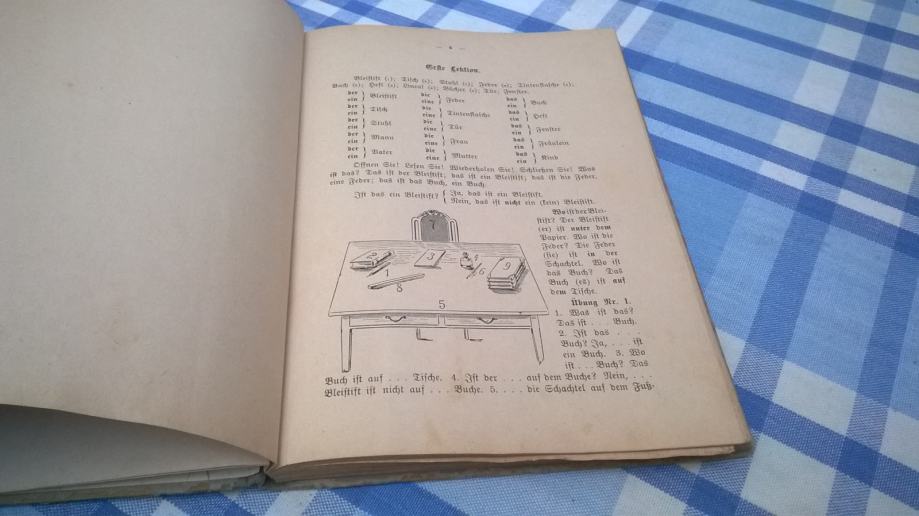 — 4 —
Erste Lektion.
Bleistift (1); Tisch (5); Stuhl (7); Feder (6); Tintenflasche (4);
Buch (2); Heft (3); Lineal (8); Bücher (9); Tür; Fenster.
der ein } Bleistift die eine } Feder das ein } Buch
der ein } Tisch die eine } Tintenflasche das ein } Heft
der ein } Stuhl die eine } Tür das ein } Fenster
der ein } Mann die eine } Frau das ein } Fräulein
der ein } Vater die eine } Mutter das ein } Kind
Öffnen Sie! Lesen Sie! Wiederholen Sie! Schließen Sie! Was
ist das? Das ist der Bleistift; das ist ein Bleistift; das ist die Feder,
eine Feder; das ist das Buch, ein Buch.
Ist das ein Bleistift? { Ja, das ist ein Bleistift.
Nein, das ist nicht ein (kein) Bleistift.
Wo ist der Blei-
stift? Der Bleistift
(er) ist unter dem
Papier. Wo ist die
Feder? Die Feder
(sie) ist in der
Schachtel. Wo ist
das Buch? Das
Buch (es) ist auf
dem Tische.
Übung Nr. 1.
1. Was ist das?
Das ist . . . Buch.
2. Ist das . . .
Buch? Ja, . . . ist
ein Buch. 3. Wo
ist . . . Buch? Das
7
2
3
4
1
6
9
8
5
Buch ist auf . . . Tische. 4. Ist der . . . auf dem Buche? Nein, . . .
Bleistift ist nicht auf . . . Buche. 5. . . . die Schachtel auf dem Fuß-